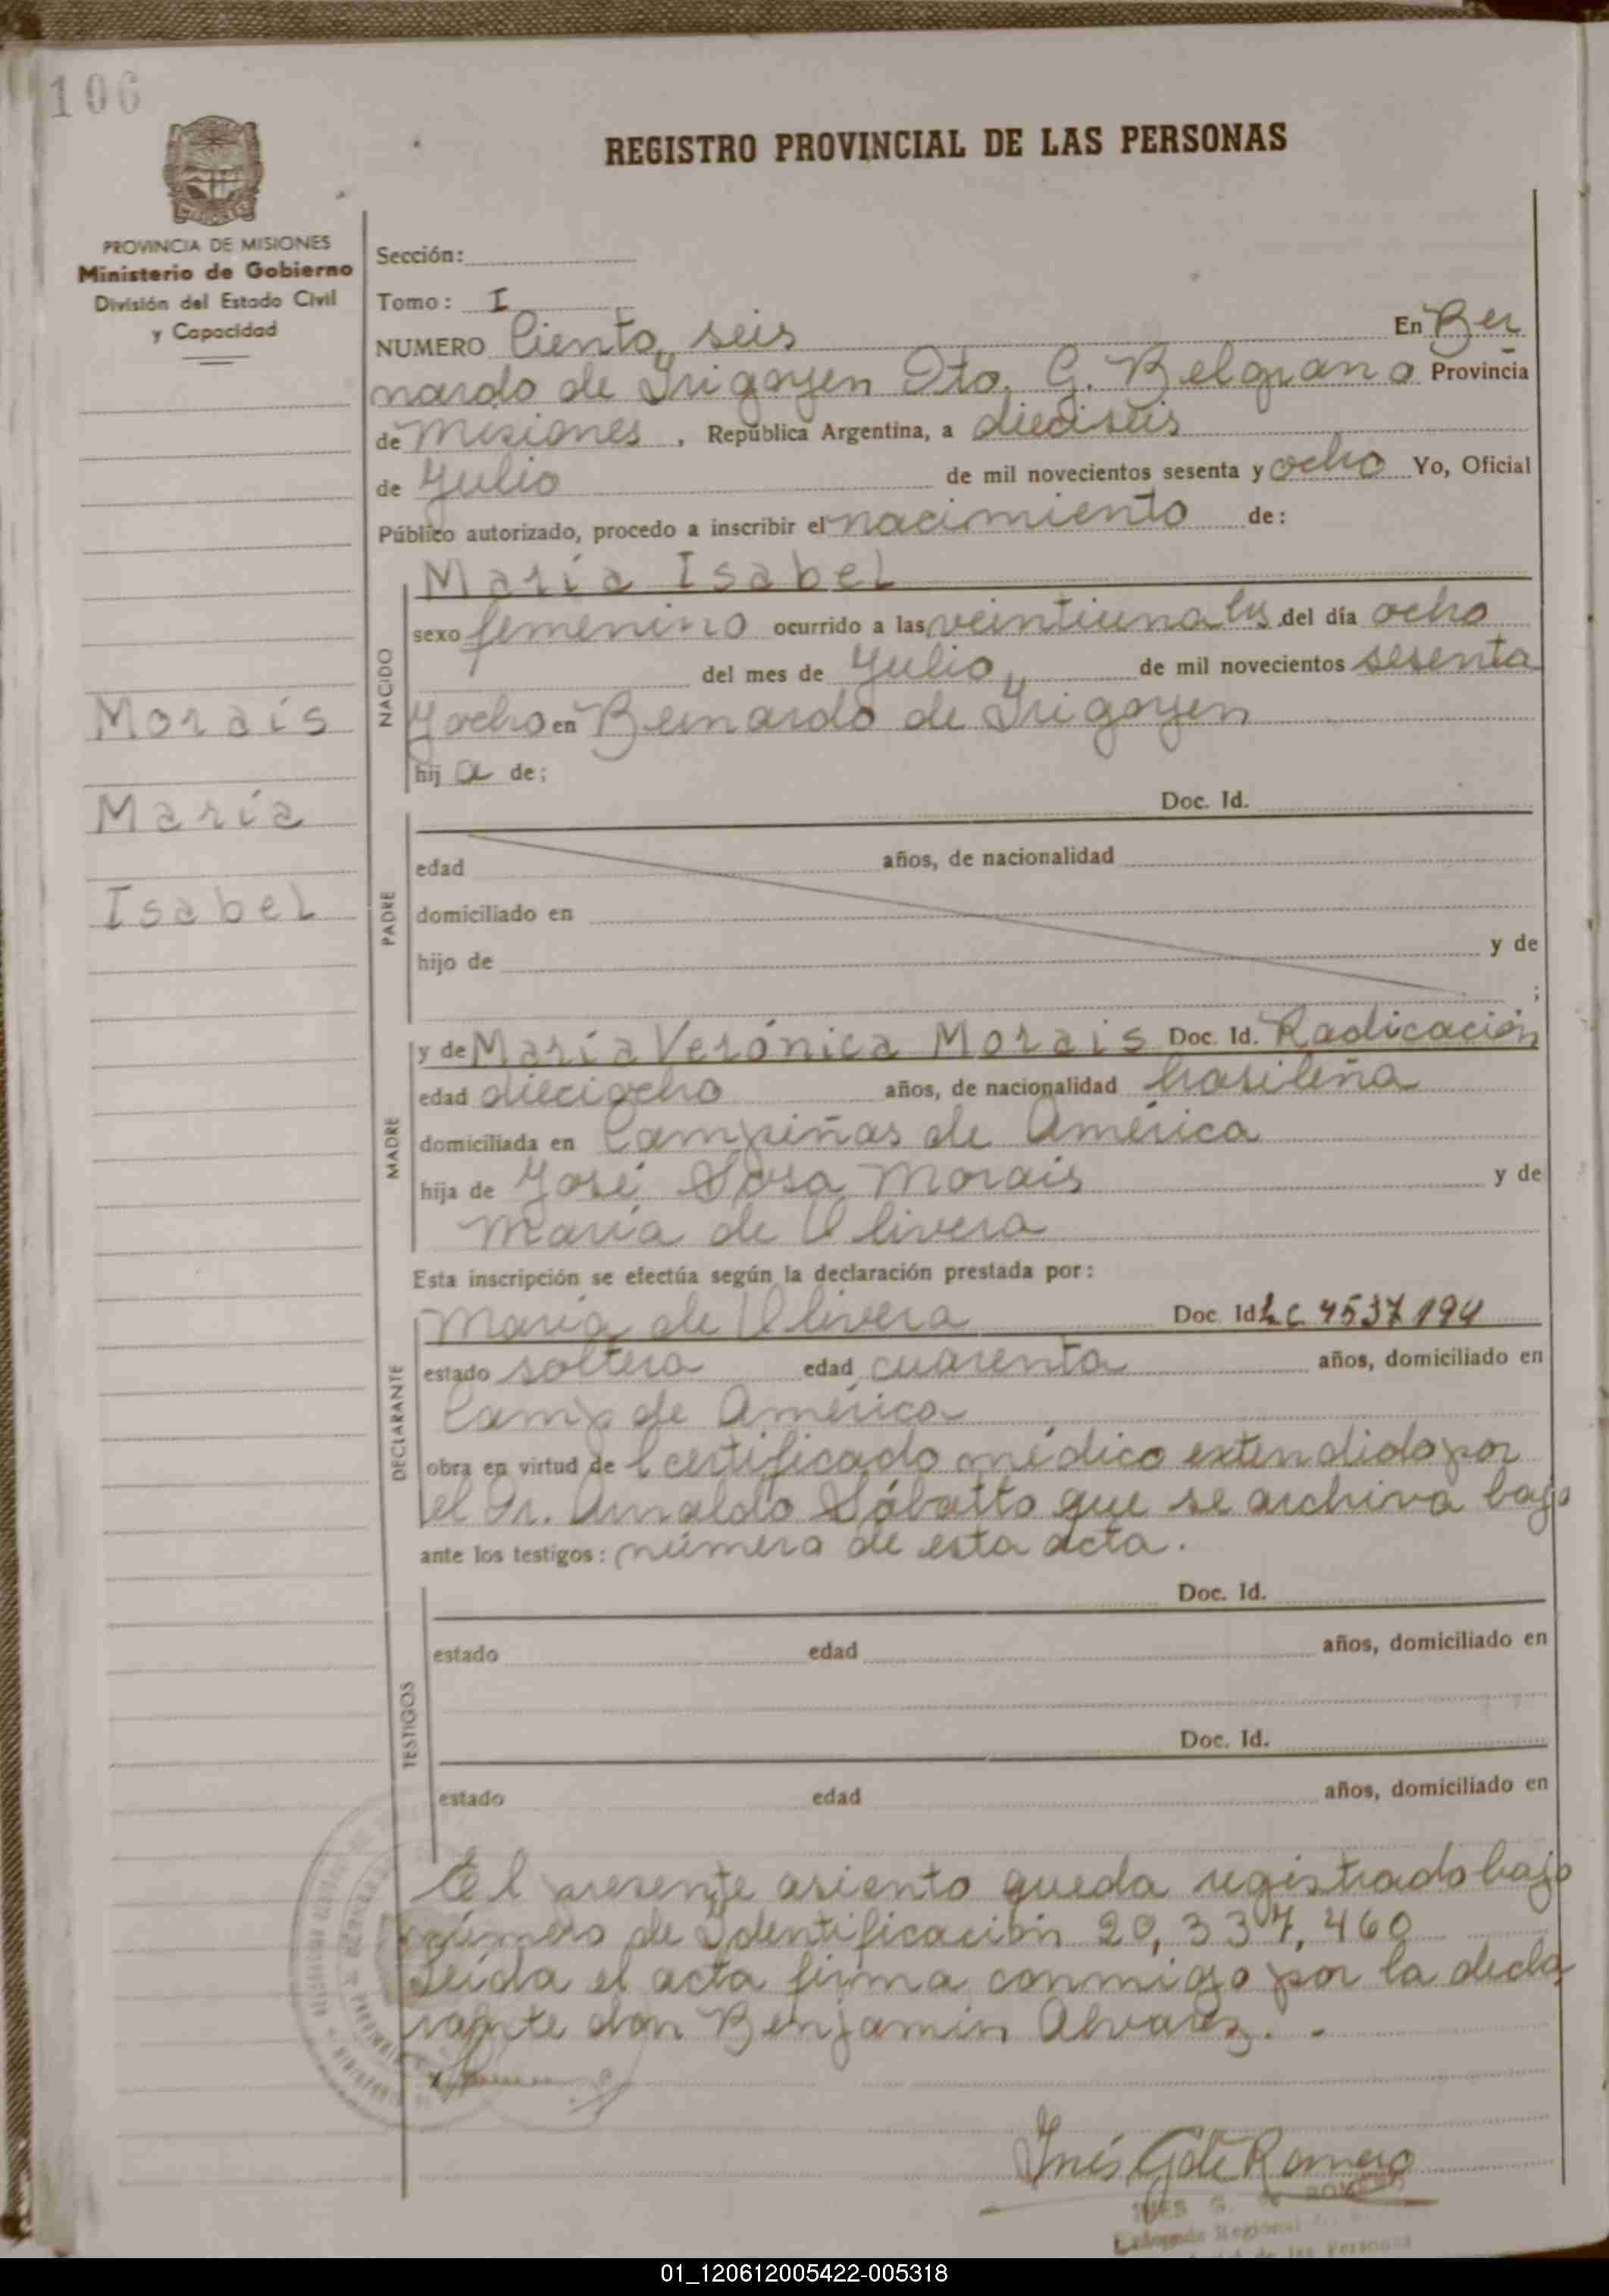 106
REGISTRO PROVINCIAL DE LAS PERSONAS
MISIONES
PROVINCIA DE MISIONES
Ministerio de Gobierno
División del Estado Civil
y Capacidad
Sección:
Tomo: I
NUMERO Ciento seis En Ber
nardo de Irigoyen Dto. G. Belgrano Provincia
de Misiones, República Argentina, a dieciseis
de Julio de mil novecientos sesenta y ocho Yo, Oficial
Público autorizado, procedo a inscribir el nacimiento de:
María Isabel
NACIDO
sexo femenino ocurrido a las veintiuna hs. del día ocho
del mes de Julio de mil novecientos sesenta
y ocho en Bernardo de Irigoyen
hija de;
Morais
María
Isabel
PADRE
Doc. Id.
edad años, de nacionalidad
domiciliado en
hijo de y de
;
MADRE
y de María Verónica Morais Doc. Id. Radicación
edad dieciocho años, de nacionalidad brasileña
domiciliada en Campiñas de América
hija de José Sosa Morais y de
María de Olivera
Esta inscripción se efectúa según la declaración prestada por:
DECLARANTE
María de Olivera Doc. Id L C 4537194
estado soltera edad cuarenta años, domiciliado en
Camp de América
obra en virtud del certificado médico extendido por
el Dr. Arnaldo Sábatto que se archiva bajo
ante los testigos: número de esta acta.
TESTIGOS
Doc. Id.
estado edad años, domiciliado en
Doc. Id.
estado edad años, domiciliado en
El presente asiento queda registrado bajo
número de Identificación 20,337,460
Leída el acta firma conmigo por la decla
rante don Benjamín Alvarez. -
Inés G de Romero
INES G. de ROMERO
Delegada Regional del
de las Personas
01_120612005422-005318